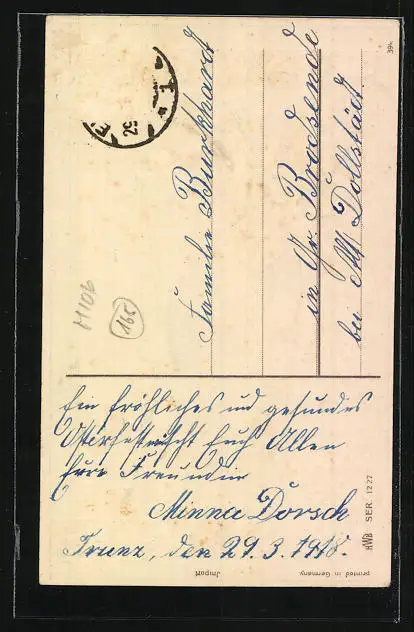 Ein fröhliches und gesundes
Osterfest wünscht Euch Allen
Eure Freundin
Minna Dorsch
Trunz, den 29. 3. 1918.
Familie Burkhardt
in Gr. Brodsende
bei Alt Dollstädt
29
1
M106
165
HWB SER. 1227
printed in Germany
Import
394